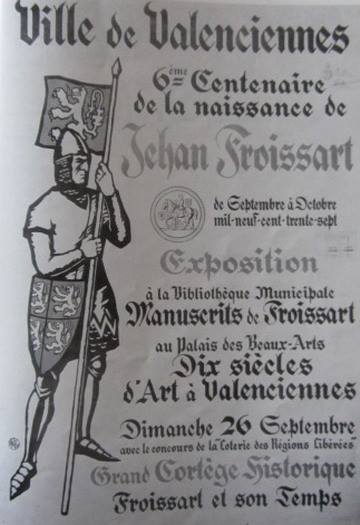 Ville de Valenciennes
6ème Centenaire
de la naissance de
Jehan Froissart
de Septembre à Octobre
mil-neuf-cent-trente-sept
Exposition
à la Bibliothèque Municipale
Manuscrits de Froissart
au Palais des Beaux-Arts
Dix siècles
d'Art à Valenciennes
Dimanche 26 Septembre
avec le concours de la Loterie des Régions Libérées
Grand Cortège Historique
Froissart et son Temps